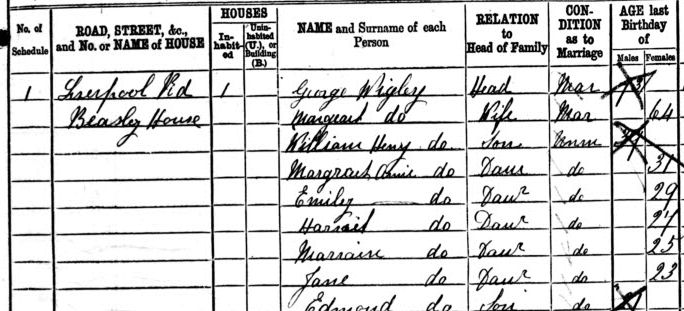 No. of Schedule ROAD, STREET, &c., and No. or NAME of HOUSE HOUSES In-habit-ed Unin-habited (U.), or Building (B.) NAME and Surname of each Person RELATION to Head of Family CON-DITION as to Marriage AGE last Birthday of Males Females
1 Liverpool Rd 1 George Wigley Head Mar
Beasley House Margeart do Wife Mar 64
William Henry do Son Unm
Margraet Annie do Daur do 31
Emily do Daur do 29
Harriet do Daur do 27
Marrain do Daur do 25
Jane do Daur do 23
Edmond do Son do